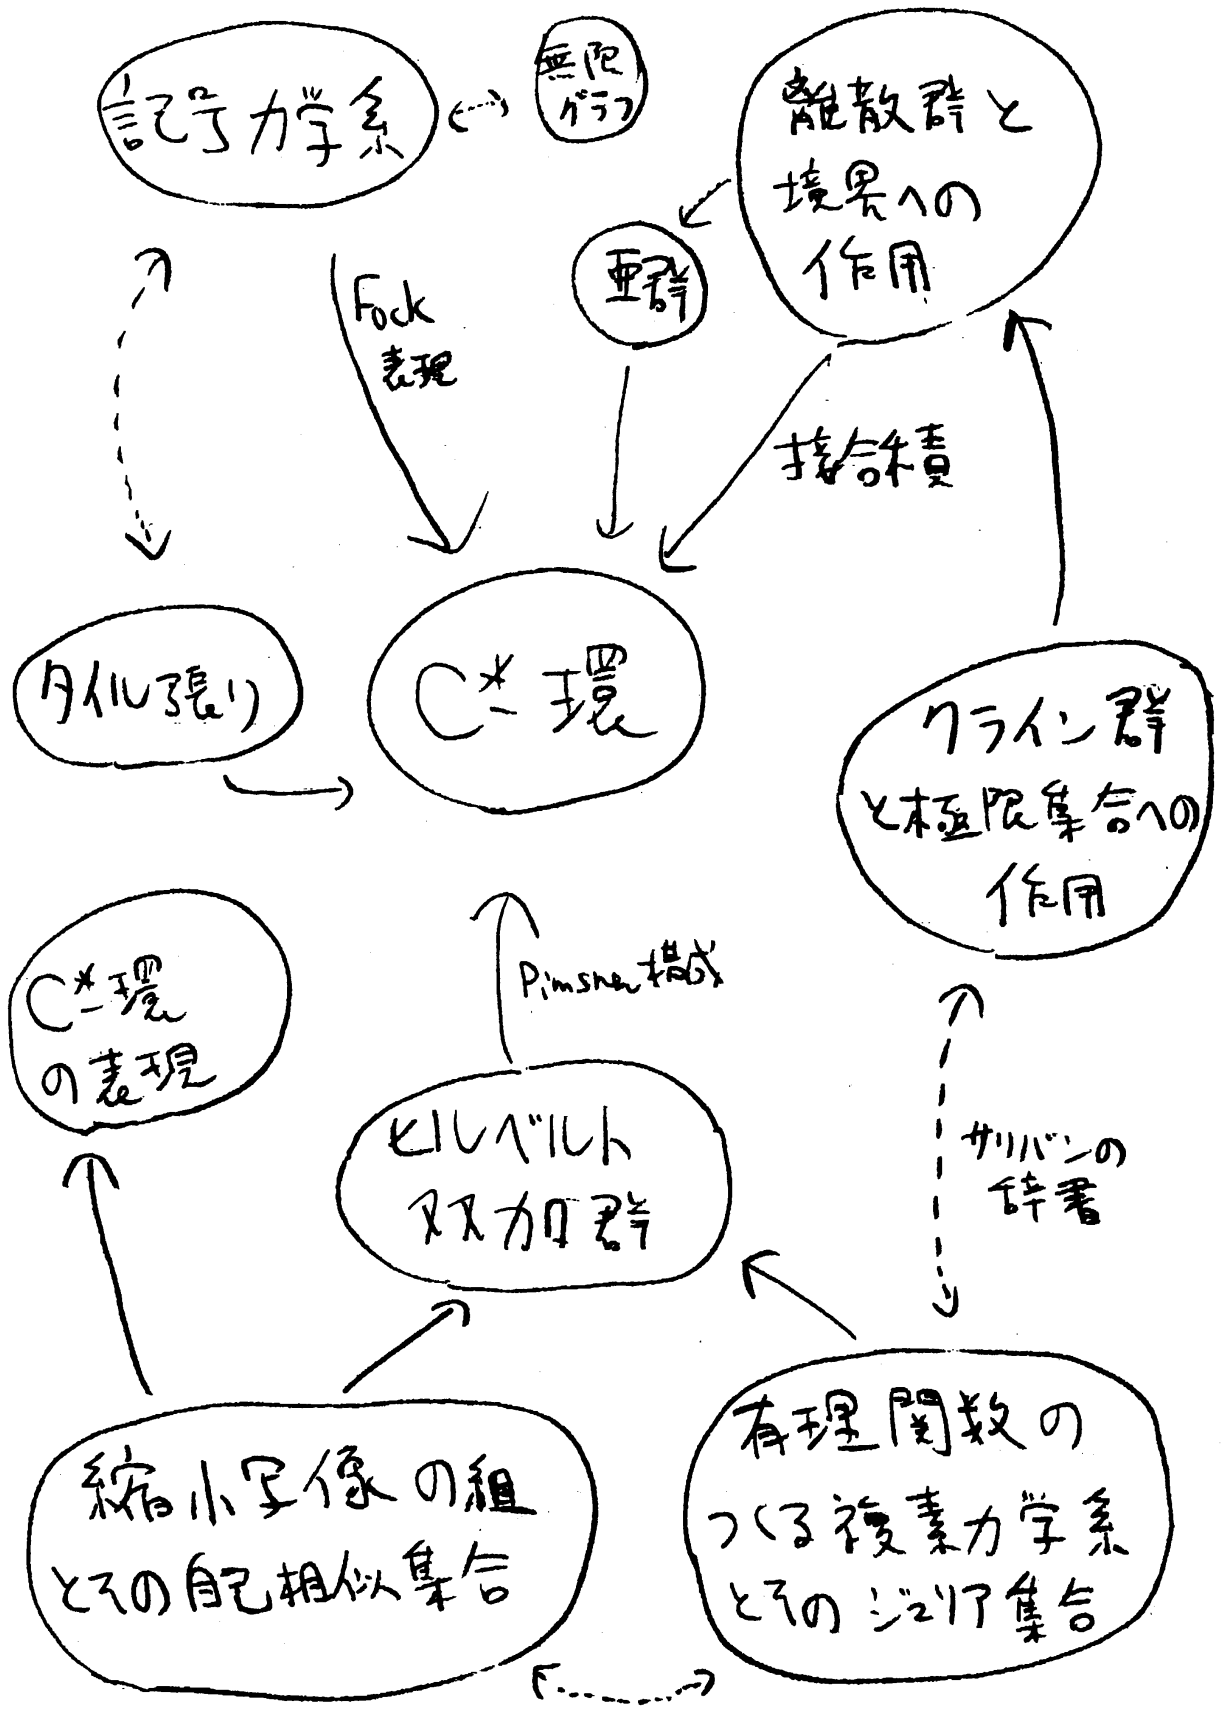 記号力学系
無限
グラフ
離散群と
境界への
作用
亜群
Fock
表現
接合積
タイル張り
C*-環
クライン群
と極限集合への
作用
C*-環
の表現
Pimsner構成
ヒルベルト
双加群
サリバンの
辞書
縮小写像の組
とその自己相似集合
有理関数の
つくる複素力学系
とそのジュリア集合